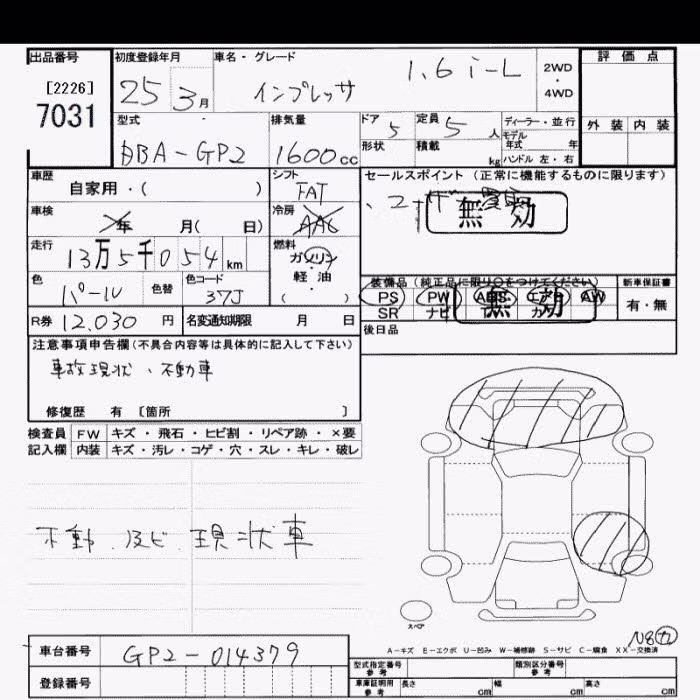 出品番号 初度登録年月 車名・グレード 評価点
[2226] 25 3月 インプレッサ 1.6 i-L 2WD・4WD
7031
型式 排気量 ドア 5 定員 5人 ディーラー・並行 外装 内装
DBA-GP2 1600cc 形状 積載 kg モデル年式 年
ハンドル 左・右
車歴 シフト セールスポイント(正常に機能するものに限ります)
自家用・( ) FAT
車検 年 月( 日) 冷房 AAC 無効
走行 13万5千054km 燃料 ガソリン・軽油・( )
色 パール 色替 色コード 37J
装備品(純正品に限り○をつけてください) 新車保証書
PS PW ABS エアB AW 有・無
SR ナビ TV カワ 無効
R券 12,030円 名変通知期限 月 日 後日品
注意事項申告欄(不具合内容等は具体的に記入して下さい)
事故現状、不動車
修復歴 有 [箇所 ]
検査員 FW キズ・飛石・ヒビ割・リペア跡・×要
記入欄 内装 キズ・汚レ・コゲ・穴・スレ・キレ・破レ
不動 及ビ 現状車
スペア
N8 カ
A-キズ E-エクボ U-凹み W-補修跡 S-サビ C-腐食 XX-交換済
車台番号 GP2-014379
登録番号
型式指定番号 参考 類別区分番号 参考
車庫証明用 参考 長さ cm 幅 cm 高さ cm